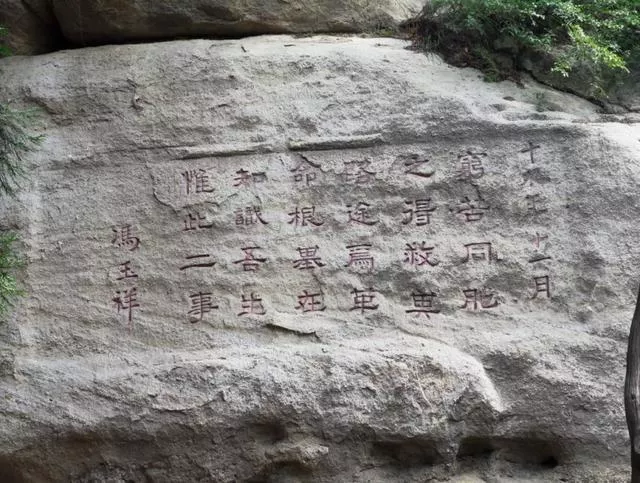 十年十一月
窮苦同胞
之得救其
路途爲革
命根基在
知識吾生
惟此二事
馮玉祥